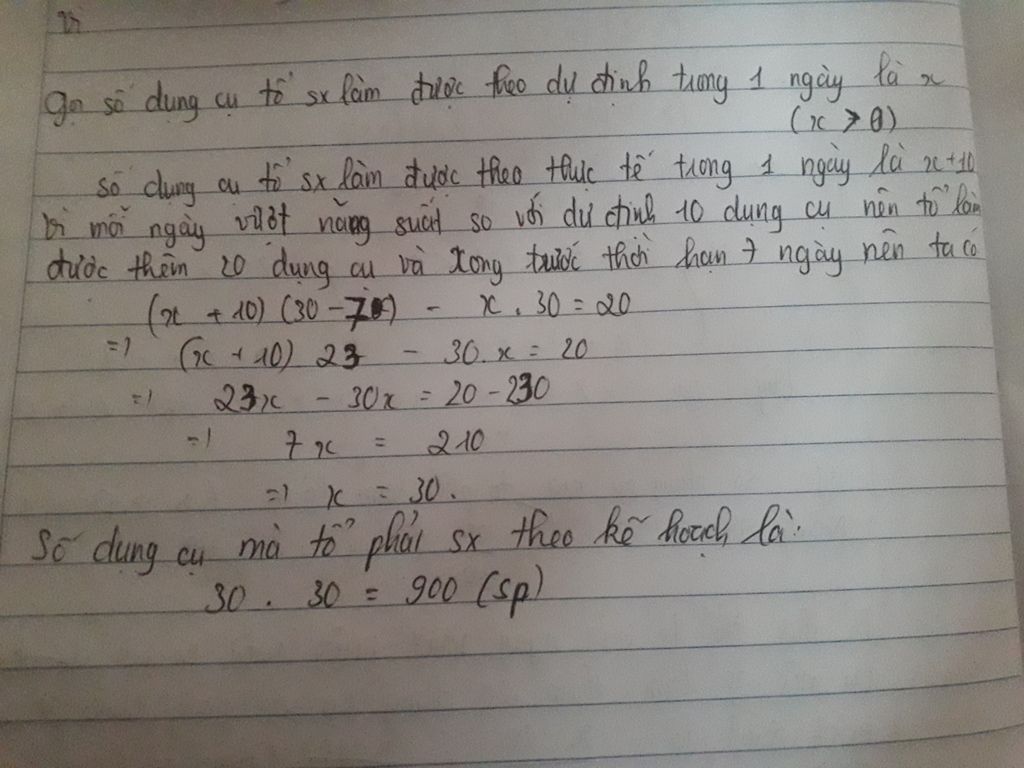 Gọi số dụng cụ tổ sx làm được theo dự định trong 1 ngày là x
(x > 0)
Số dụng cụ tổ sx làm được theo thực tế trong 1 ngày là x+10
Vì mỗi ngày vượt năng suất so với dự định 10 dụng cụ nên tổ làm
được thêm 20 dụng cụ và xong trước thời hạn 7 ngày nên ta có
(x + 10) (30 - 7) - x . 30 = 20
=> (x + 10) 23 - 30.x = 20
=> 23x - 30x = 20 - 230
=> 7x = 210
=> x = 30.
Số dụng cụ mà tổ phải sx theo kế hoạch là:
30 . 30 = 900 (sp)